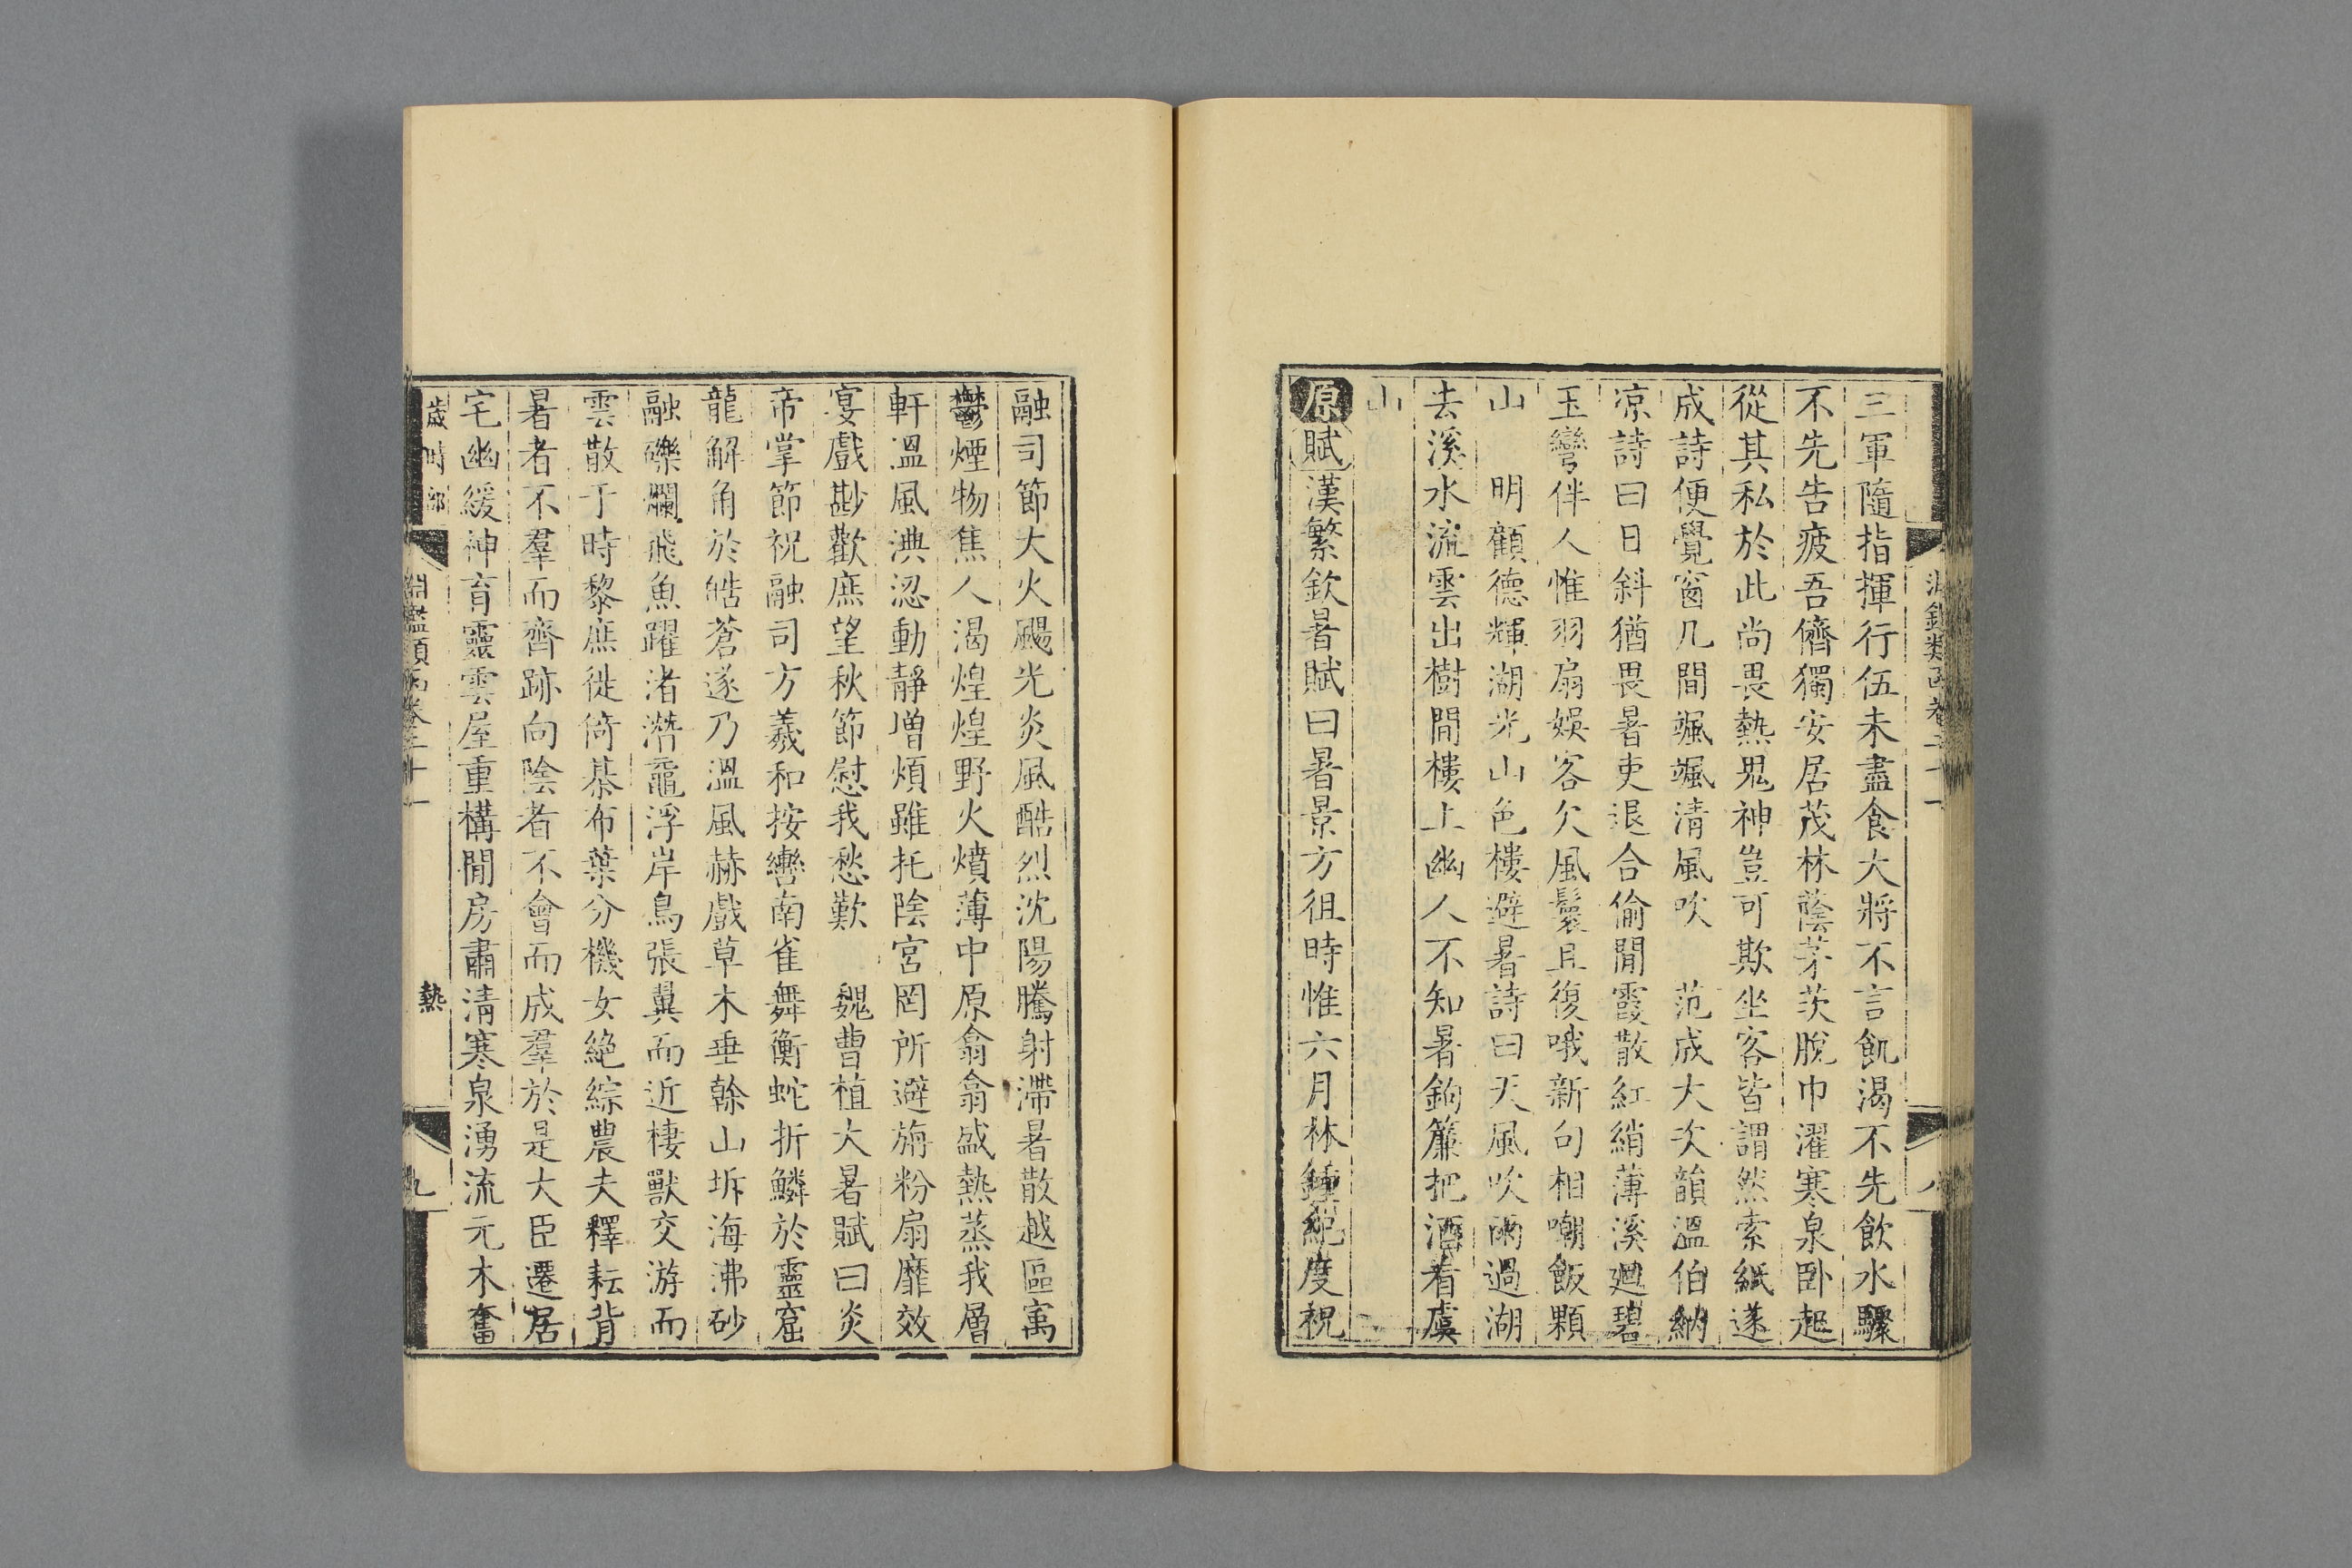 三軍隨指揮行伍未盡食大將不言飢渴不先飲水驟
不先告疲吾儕獨安居茂林蔭茅茨脫巾濯寒泉卧起
從其私於此尚畏熱鬼神豈可欺坐客皆謂然索紙遂
成詩便覺窗几間颯颯清風吹　范成大次韻溫伯納
凉詩曰日斜猶畏暑吏退合偷閒霞散紅綃薄溪廻碧
玉彎伴人惟羽扇娛客欠風鬟且復哦新句相嘲飯顆
山　明顧德輝湖光山色樓避暑詩曰天風吹雨過湖
去溪水流雲出樹間樓上幽人不知暑鉤簾把酒看虞
山
原賦漢繁欽暑賦曰暑景方徂時惟六月林鍾紀度祝
融司節大火颺光炎風酷烈沈陽騰射滯暑散越區㝢
鬱煙物焦人渴煌煌野火熿薄中原翕翕盛熱蒸我層
軒溫風淟涊動靜增煩雖托陰宮罔所避旃粉扇靡效
宴戲尠歡庶望秋節慰我愁歎　魏曹植大暑賦曰炎
帝掌節祝融司方羲和按轡南雀舞衡蛇折鱗於靈窟
龍解角於皓蒼遂乃溫風赫戲草木垂榦山坼海沸砂
融礫爛飛魚躍渚潛黿浮岸鳥張翼而近棲獸交游而
雲散于時黎庶徙倚棊布葉分機女絕綜農夫釋耘背
暑者不羣而齊跡向陰者不會而成羣於是大臣遷居
宅幽緩神育靈雲屋重構閒房肅清寒泉湧流元木奮
歲時部
熱
九